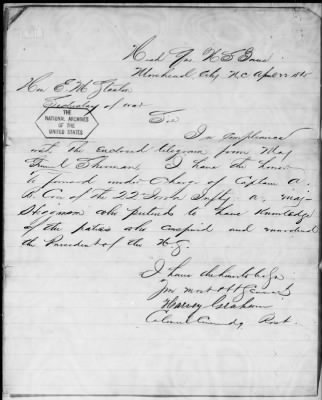 Head Qrs
Morehead City N.C. April 22 1865
Hon E. M. Stanton
Secretary of war
THE
NATIONAL ARCHIVES
OF THE
UNITED STATES
Sir
In compliance
with the enclosed telegram from Maj
Genrl Sherman I have the honor
to forward under charge of Captain A.
B. of the 22 Iowa Infty a man
who pretends to have knowledge
of the parties who conspired and murdered
the President of the U.S.
I have the honor to be Genl
your most obt servant
Harvey Graham
Colonel Comndg Post.